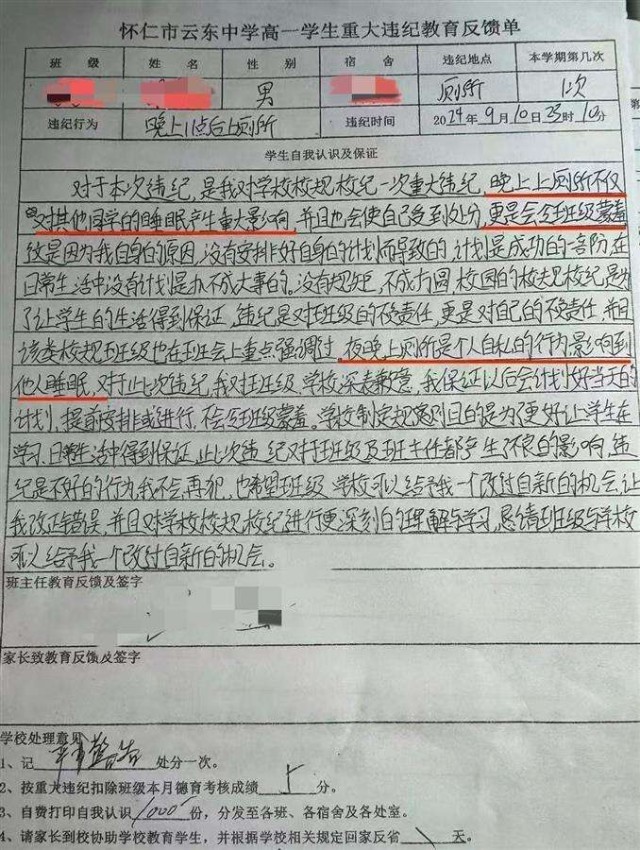 怀仁市云东中学高一学生重大违纪教育反馈单
班 级 姓 名 性 别 宿 舍 违纪地点 本学期第几次
男 厕所 1次
违纪行为 晚上11点后上厕所 违纪时间 2024年9月10日23时10分
学生自我认识及保证
对于本次违纪,是我对学校校规校纪一次重大违纪,晚上上厕所不仅
对其他同学的睡眠产生重大影响,并且也会使自己受到处分,更是会给班级蒙羞
这是因为我自身的原因,没有安排好自身的计划而导致的,计划是成功的一部分,在
日常生活中没有计划是办不成大事的。没有规矩,不成方圆,校园的校规校纪是为
了让学生的生活得到保证,违纪是对班级的不负责任,更是对自己的不负责任,并且
该类校规班级也在班会上重点强调过。夜晚上厕所是个人自私的行为,影响到
他人睡眠,对于此次违纪,我对班级,学校深表歉意,我保证以后会计划好当天的
计划,提前安排或进行,不会给班级蒙羞。学校制定规章制度目的是为了更好让学生在
学习,日常生活中得到保证,此次违纪对班级及班主任都产生了不良的影响,违
纪是不好的行为,我不会再犯,也希望班级,学校可以给予我一个改过自新的机会,让
我改正错误,并且对学校校规校纪进行更深刻的理解与学习,恳请班级与学校
可以给予我一个改过自新的机会。
班主任教育反馈及签字
家长致教育反馈及签字
学校处理意见
1、记 严重警告 处分一次。
2、按重大违纪扣除班级本月德育考核成绩 5 分。
3、自费打印自我认识 1000 份,分发至各班、各宿舍及各处室。
4、请家长到校协助学校教育学生,并根据学校相关规定回家反省 \ 天。